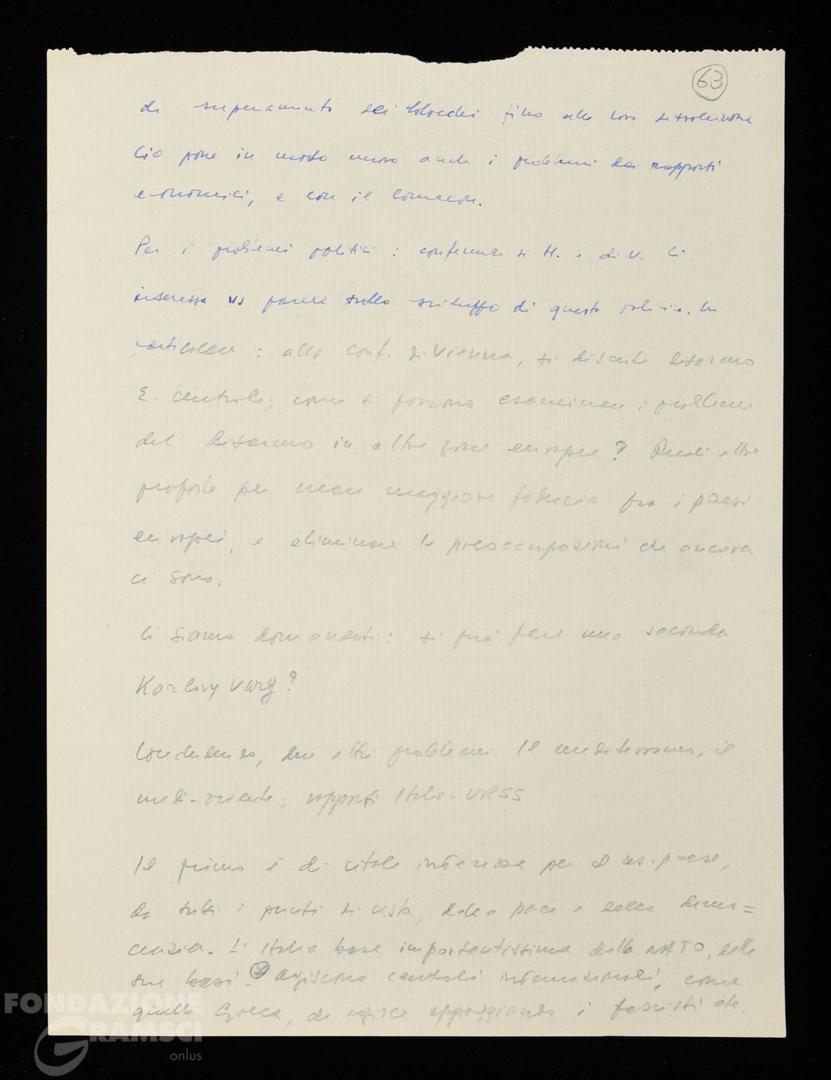 63
di superamento dei blocchi fino alla loro dissoluzione
Ciò pone in modo nuovo anche i problemi dei rapporti
economici, e con il Comecon.
Per i problemi politici: conferenze di H. e di V. Ci
interessa vs parere sullo sviluppo di questa politica. In
particolare: alla conf. di Vienna, si discute disarmo
E. centrale; come si possono esaminare i problemi
del disarmo in altre zone europee? Quali altre
proposte per creare maggiore fiducia fra i paesi
europei, e eliminare le preoccupazioni che ancora
ci sono.
Ci siamo domandati: si può fare una seconda
Karlovy Vary?
Concludendo, due altri problemi. Il mediterraneo, il
medi-oriente; rapporti Italia-URSS
Il primo è di vitale interesse per il ns. paese,
da tutti i punti di vista, della pace e della demo=
crazia. L'Italia base importantissima della NATO, delle
sue basi. Agiscono centrali internazionali, come
quella Greca, che agisce appoggiando i fascisti ecc.
FONDAZIONE
GRAMSCI
onlus